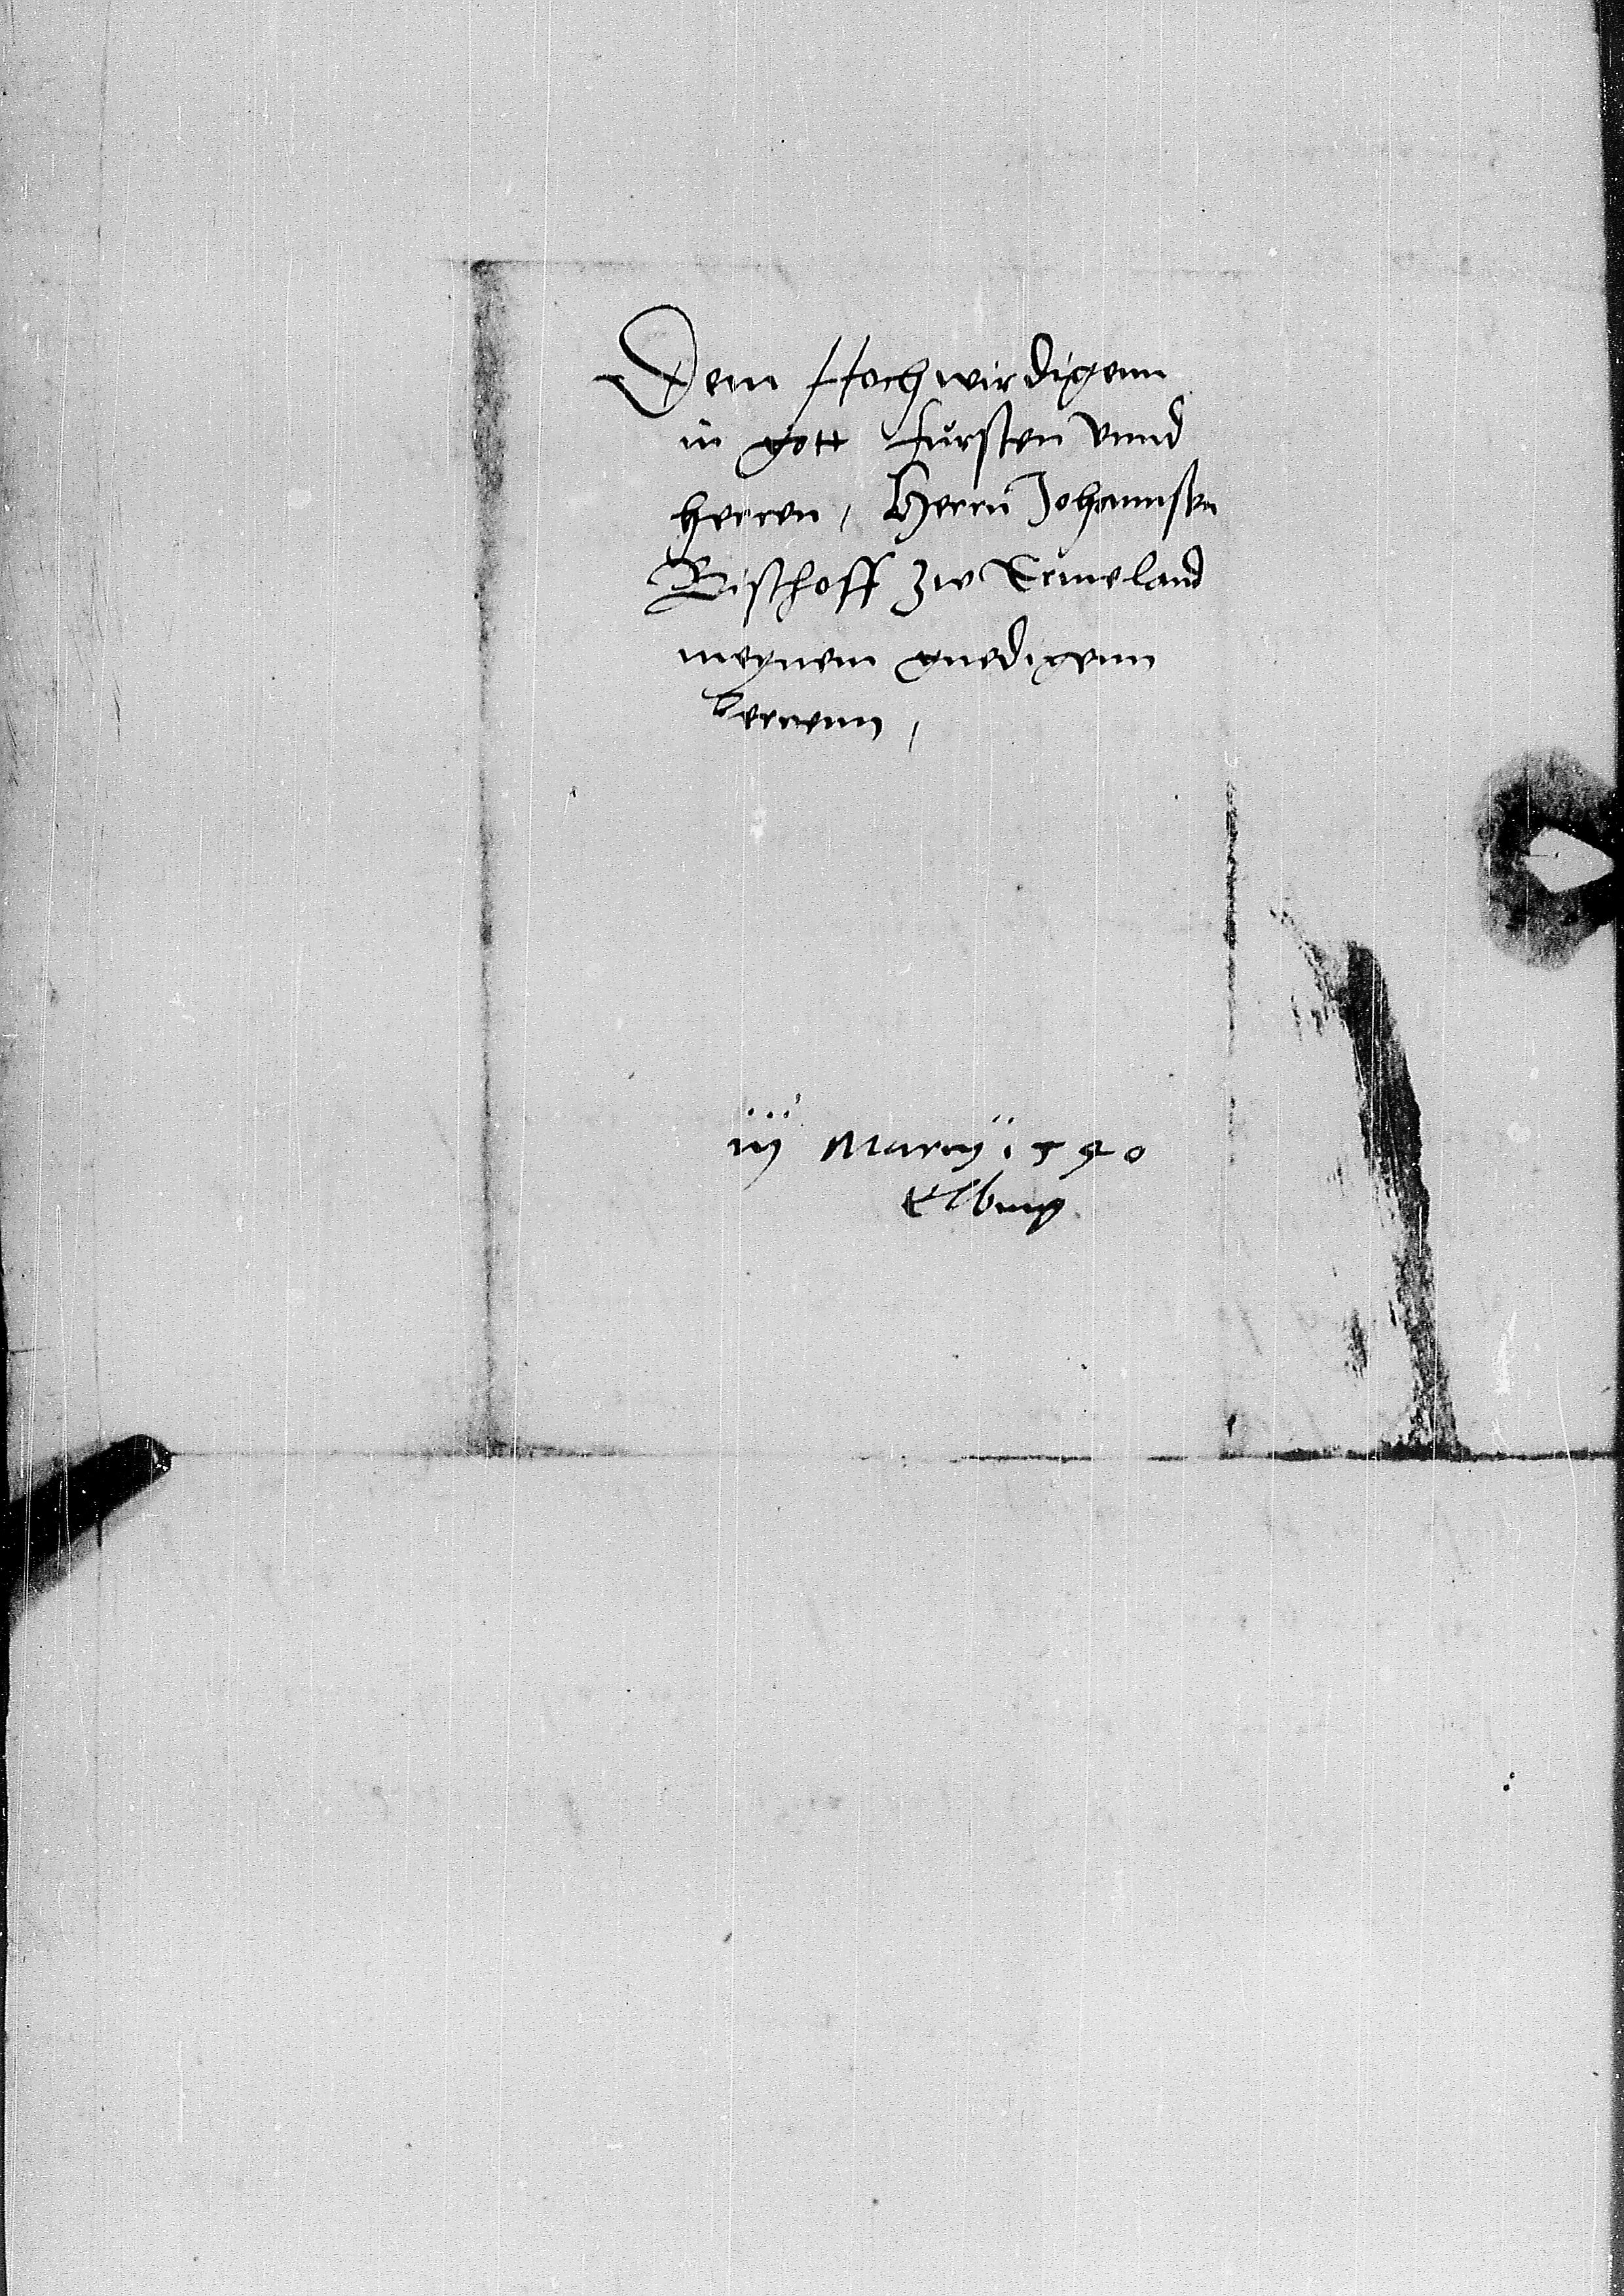 Dem Hochwirdigenn
in gott fursten vnnd
herren, Herrn Johannsen
Bischoff zw Ermeland
meynem gnedigenn
herrenn,
iij Marcij 1540
Elbing